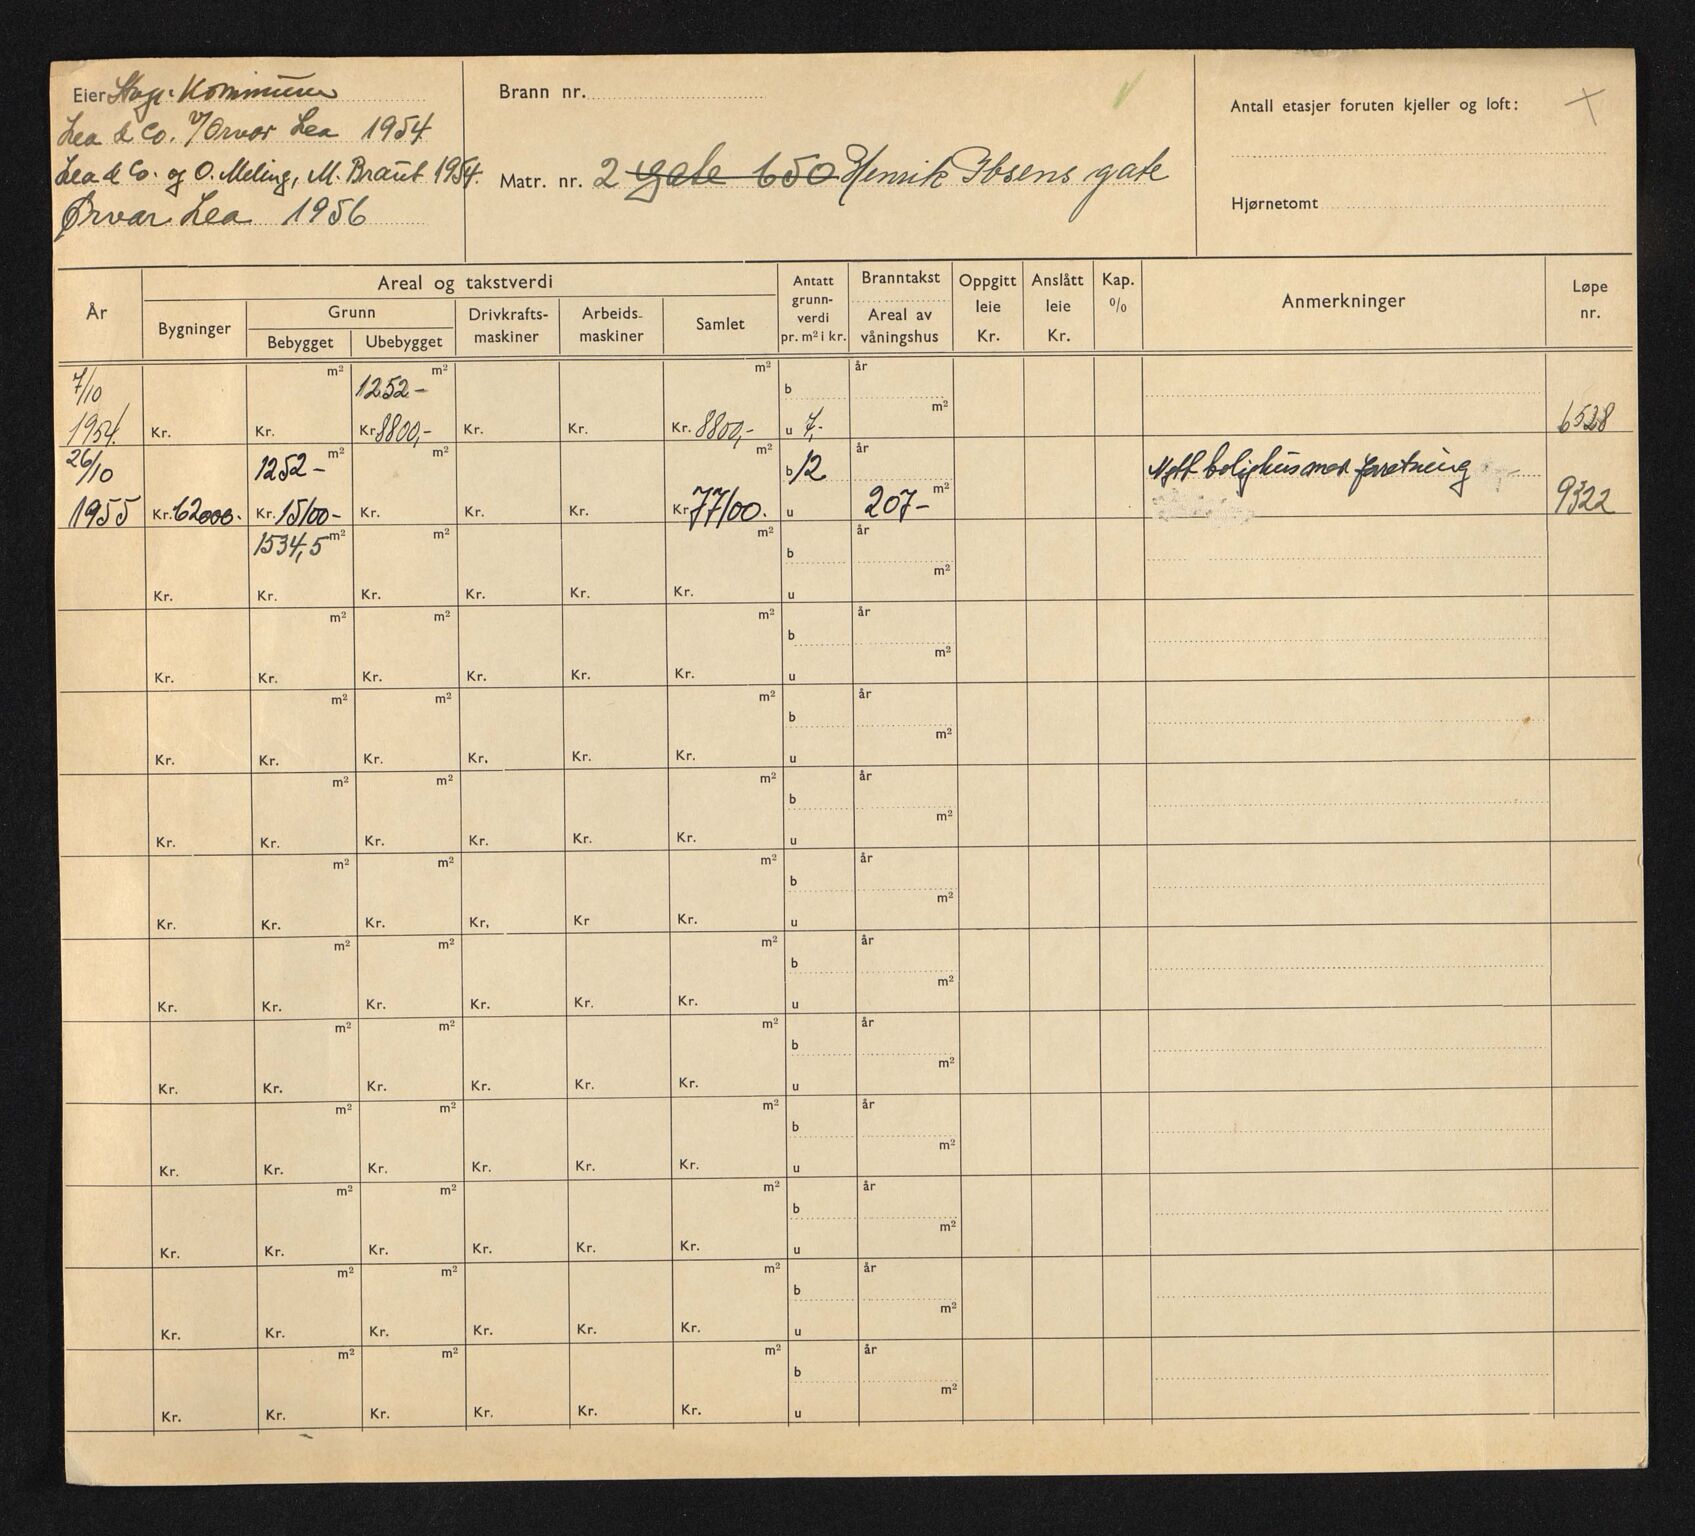 Eier Stvgr. Kommune
Lea & Co. v/Ørvar Lea 1954
Lea & Co. og O. Meling, M. Braut 1954.
Ørvar Lea 1956
Brann nr.
Matr. nr. 2 gate 650 Henrik Ibsens gate
Antall etasjer foruten kjeller og loft:
Hjørnetomt
År
Areal og takstverdi
Bygninger
Grunn
Bebygget Ubebygget
Drivkrafts-
maskiner
Arbeids-
maskiner
Samlet
Antatt
grunn-
verdi
pr. m² i kr.
Branntakst
Areal av
våningshus
Oppgitt
leie
Kr.
Anslått
leie
Kr.
Kap.
%
Anmerkninger
Løpe
nr.
7/10 m² 1252- m² m² b år
1954. Kr. Kr. Kr 8800,- Kr. Kr. Kr. 8800,- u 7,- m² 6528
26/10 1252- m² m² m² b 12 år Nytt bolighus med forretning
1955 Kr. 62000. Kr. 15100- Kr. Kr. Kr. Kr 77100. u 207- m² 9322
1534,5 m² m² m² b år
Kr. Kr. Kr. Kr. Kr. Kr. u m²
m² m² m² b år
Kr. Kr. Kr. Kr. Kr. Kr. u m²
m² m² m² b år
Kr. Kr. Kr. Kr. Kr. Kr. u m²
m² m² m² b år
Kr. Kr. Kr. Kr. Kr. Kr. u m²
m² m² m² b år
Kr. Kr. Kr. Kr. Kr Kr. u m²
m² m² m² b år
Kr. Kr. Kr. Kr. Kr. Kr. u m²
m² m² m² b år
Kr. Kr. Kr. Kr. Kr. Kr. u m²
m² m² m² b år
Kr. Kr. Kr. Kr. Kr. Kr. u m²
m² m² m² b år
Kr. Kr. Kr. Kr. Kr. Kr. u m²
m² m² m² b år
Kr. Kr. Kr. Kr. Kr. Kr. u m²
m² m² m² b år
Kr. Kr. Kr. Kr. Kr. Kr. u m²